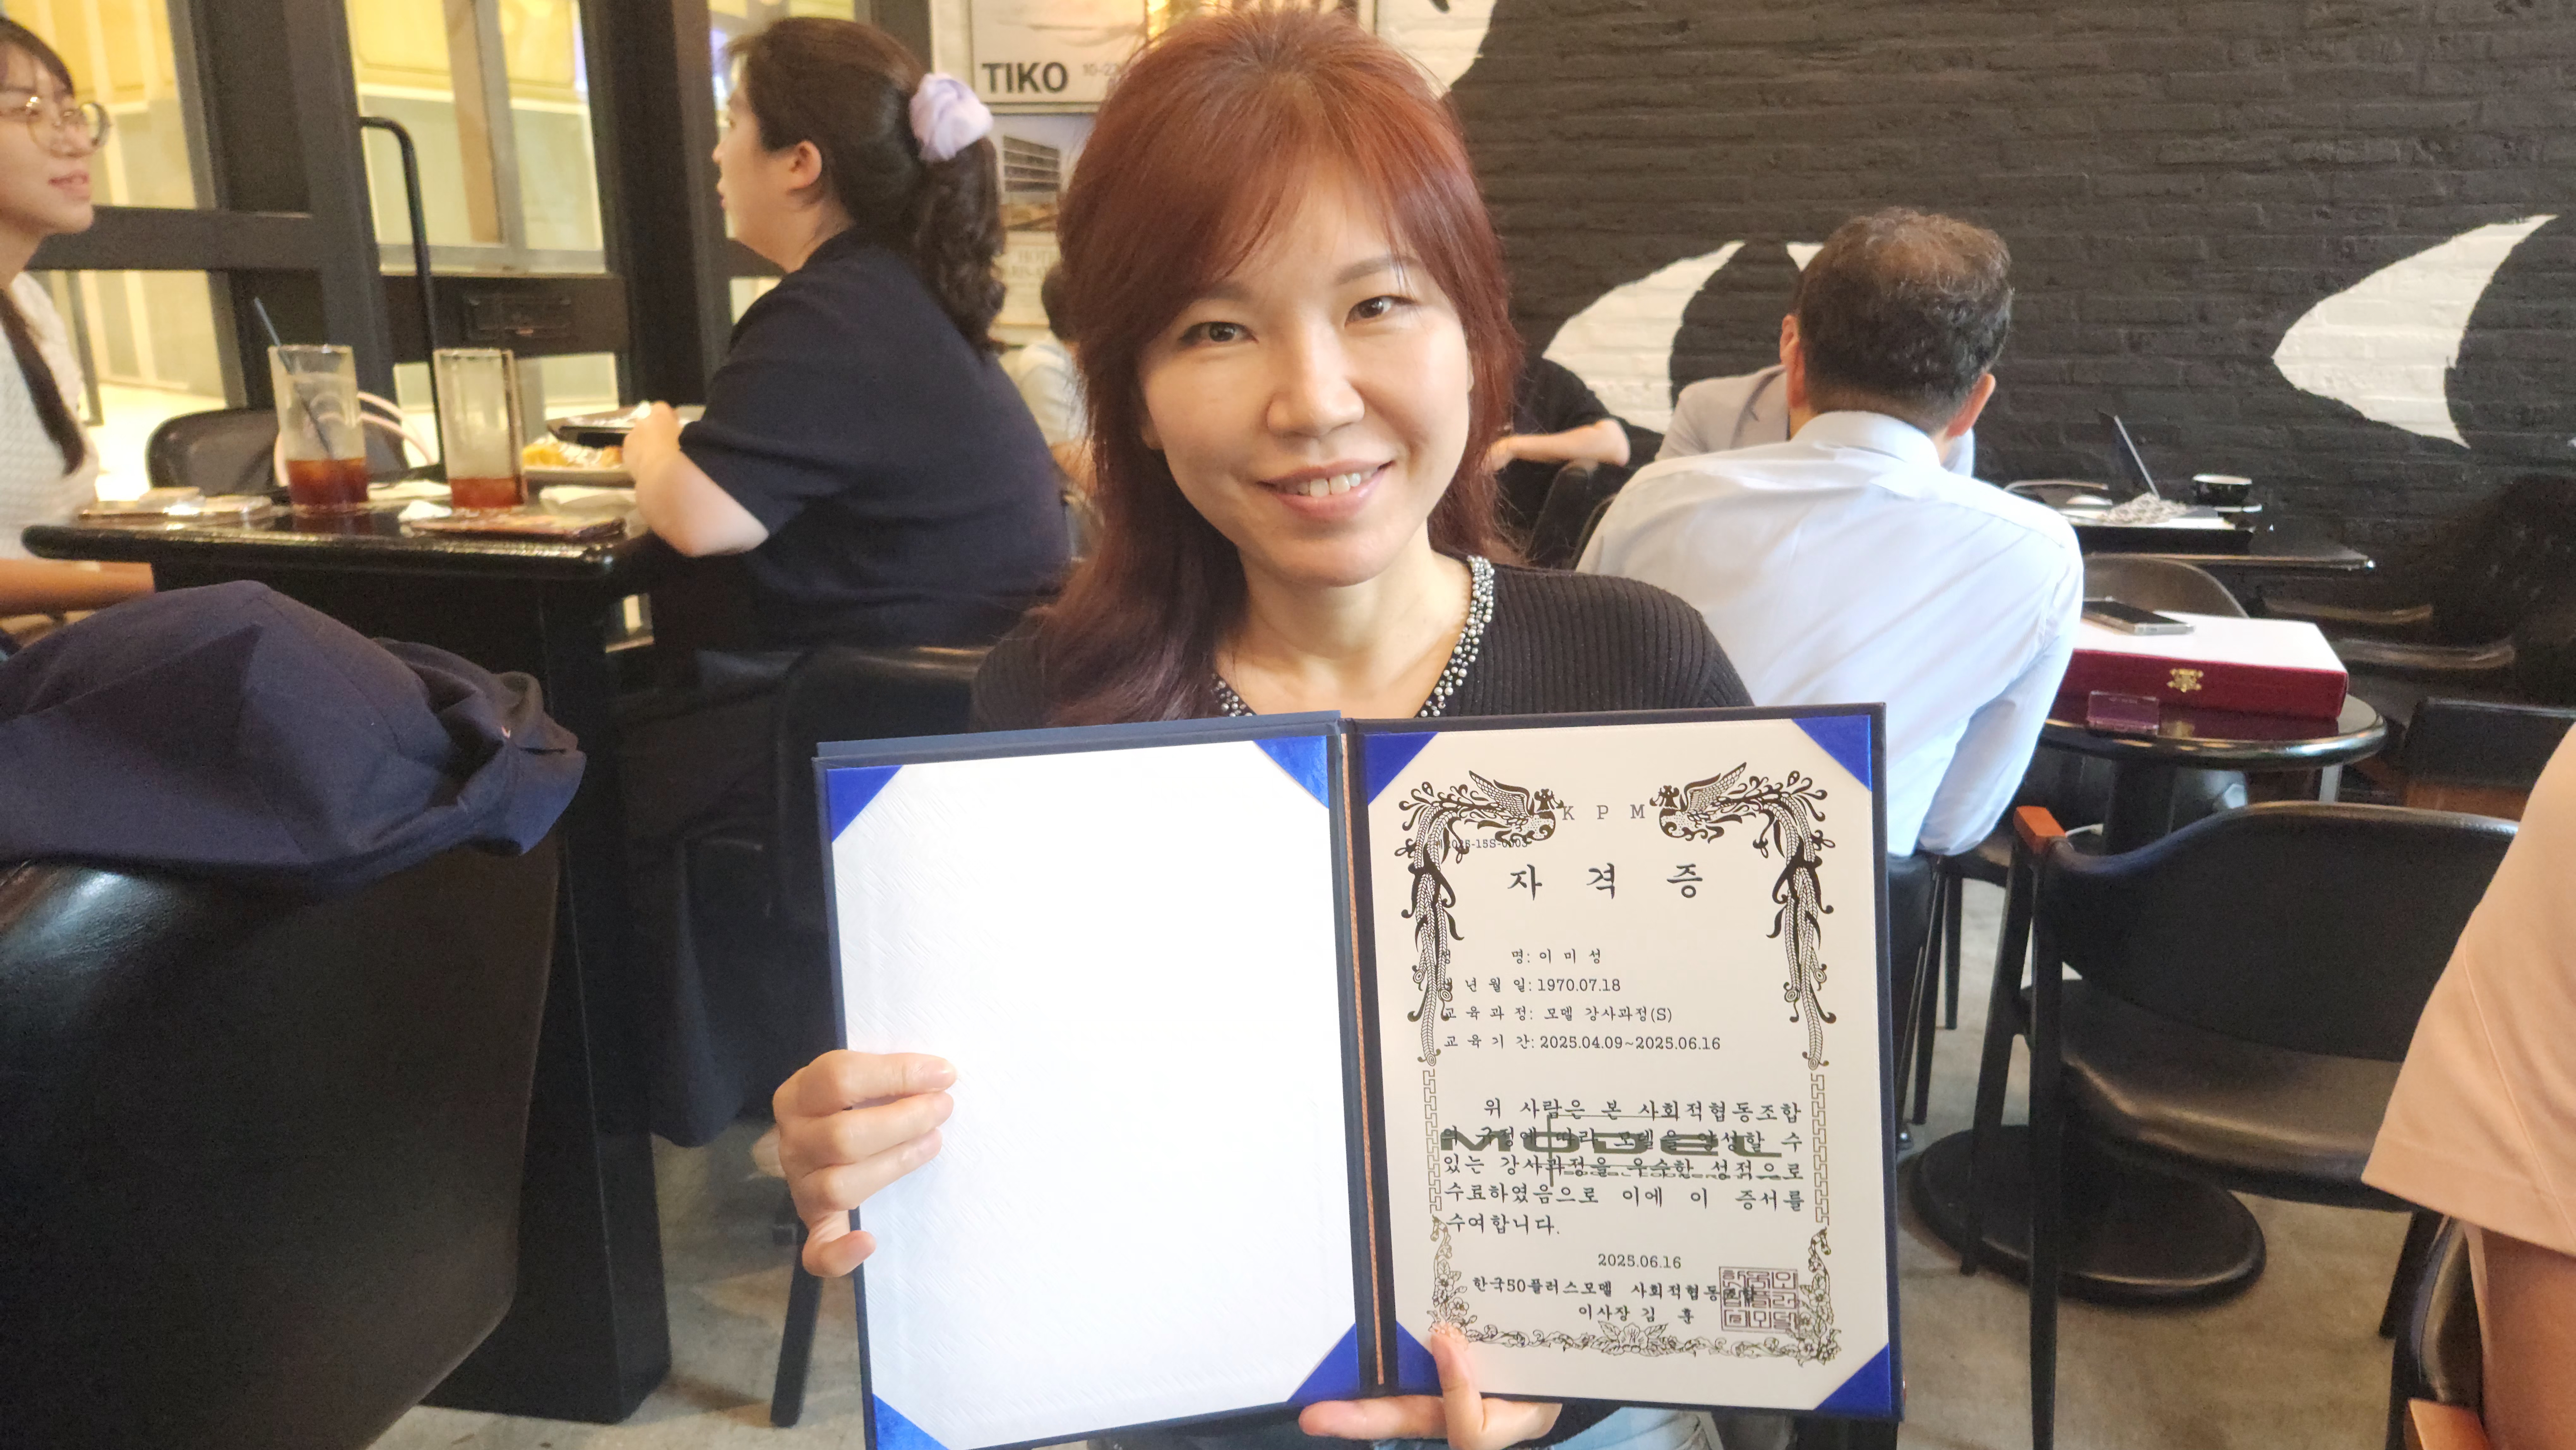 TIKO
K P M
자 격 증
명: 이 미 성
년 월 일: 1970.07.18
교 육 과 정: 모델 강사과정(S)
교 육 기 간: 2025.04.09~2025.06.16
위 사람은 본 사회적협동조합
의 규정에 따라 모델을 양성할 수
있는 강사과정을 우수한 성적으로
수료하였음으로 이에 이 증서를
수여합니다.
MODEL
2025.06.16
한국50플러스모델 사회적협동조합
이사장 김 훈